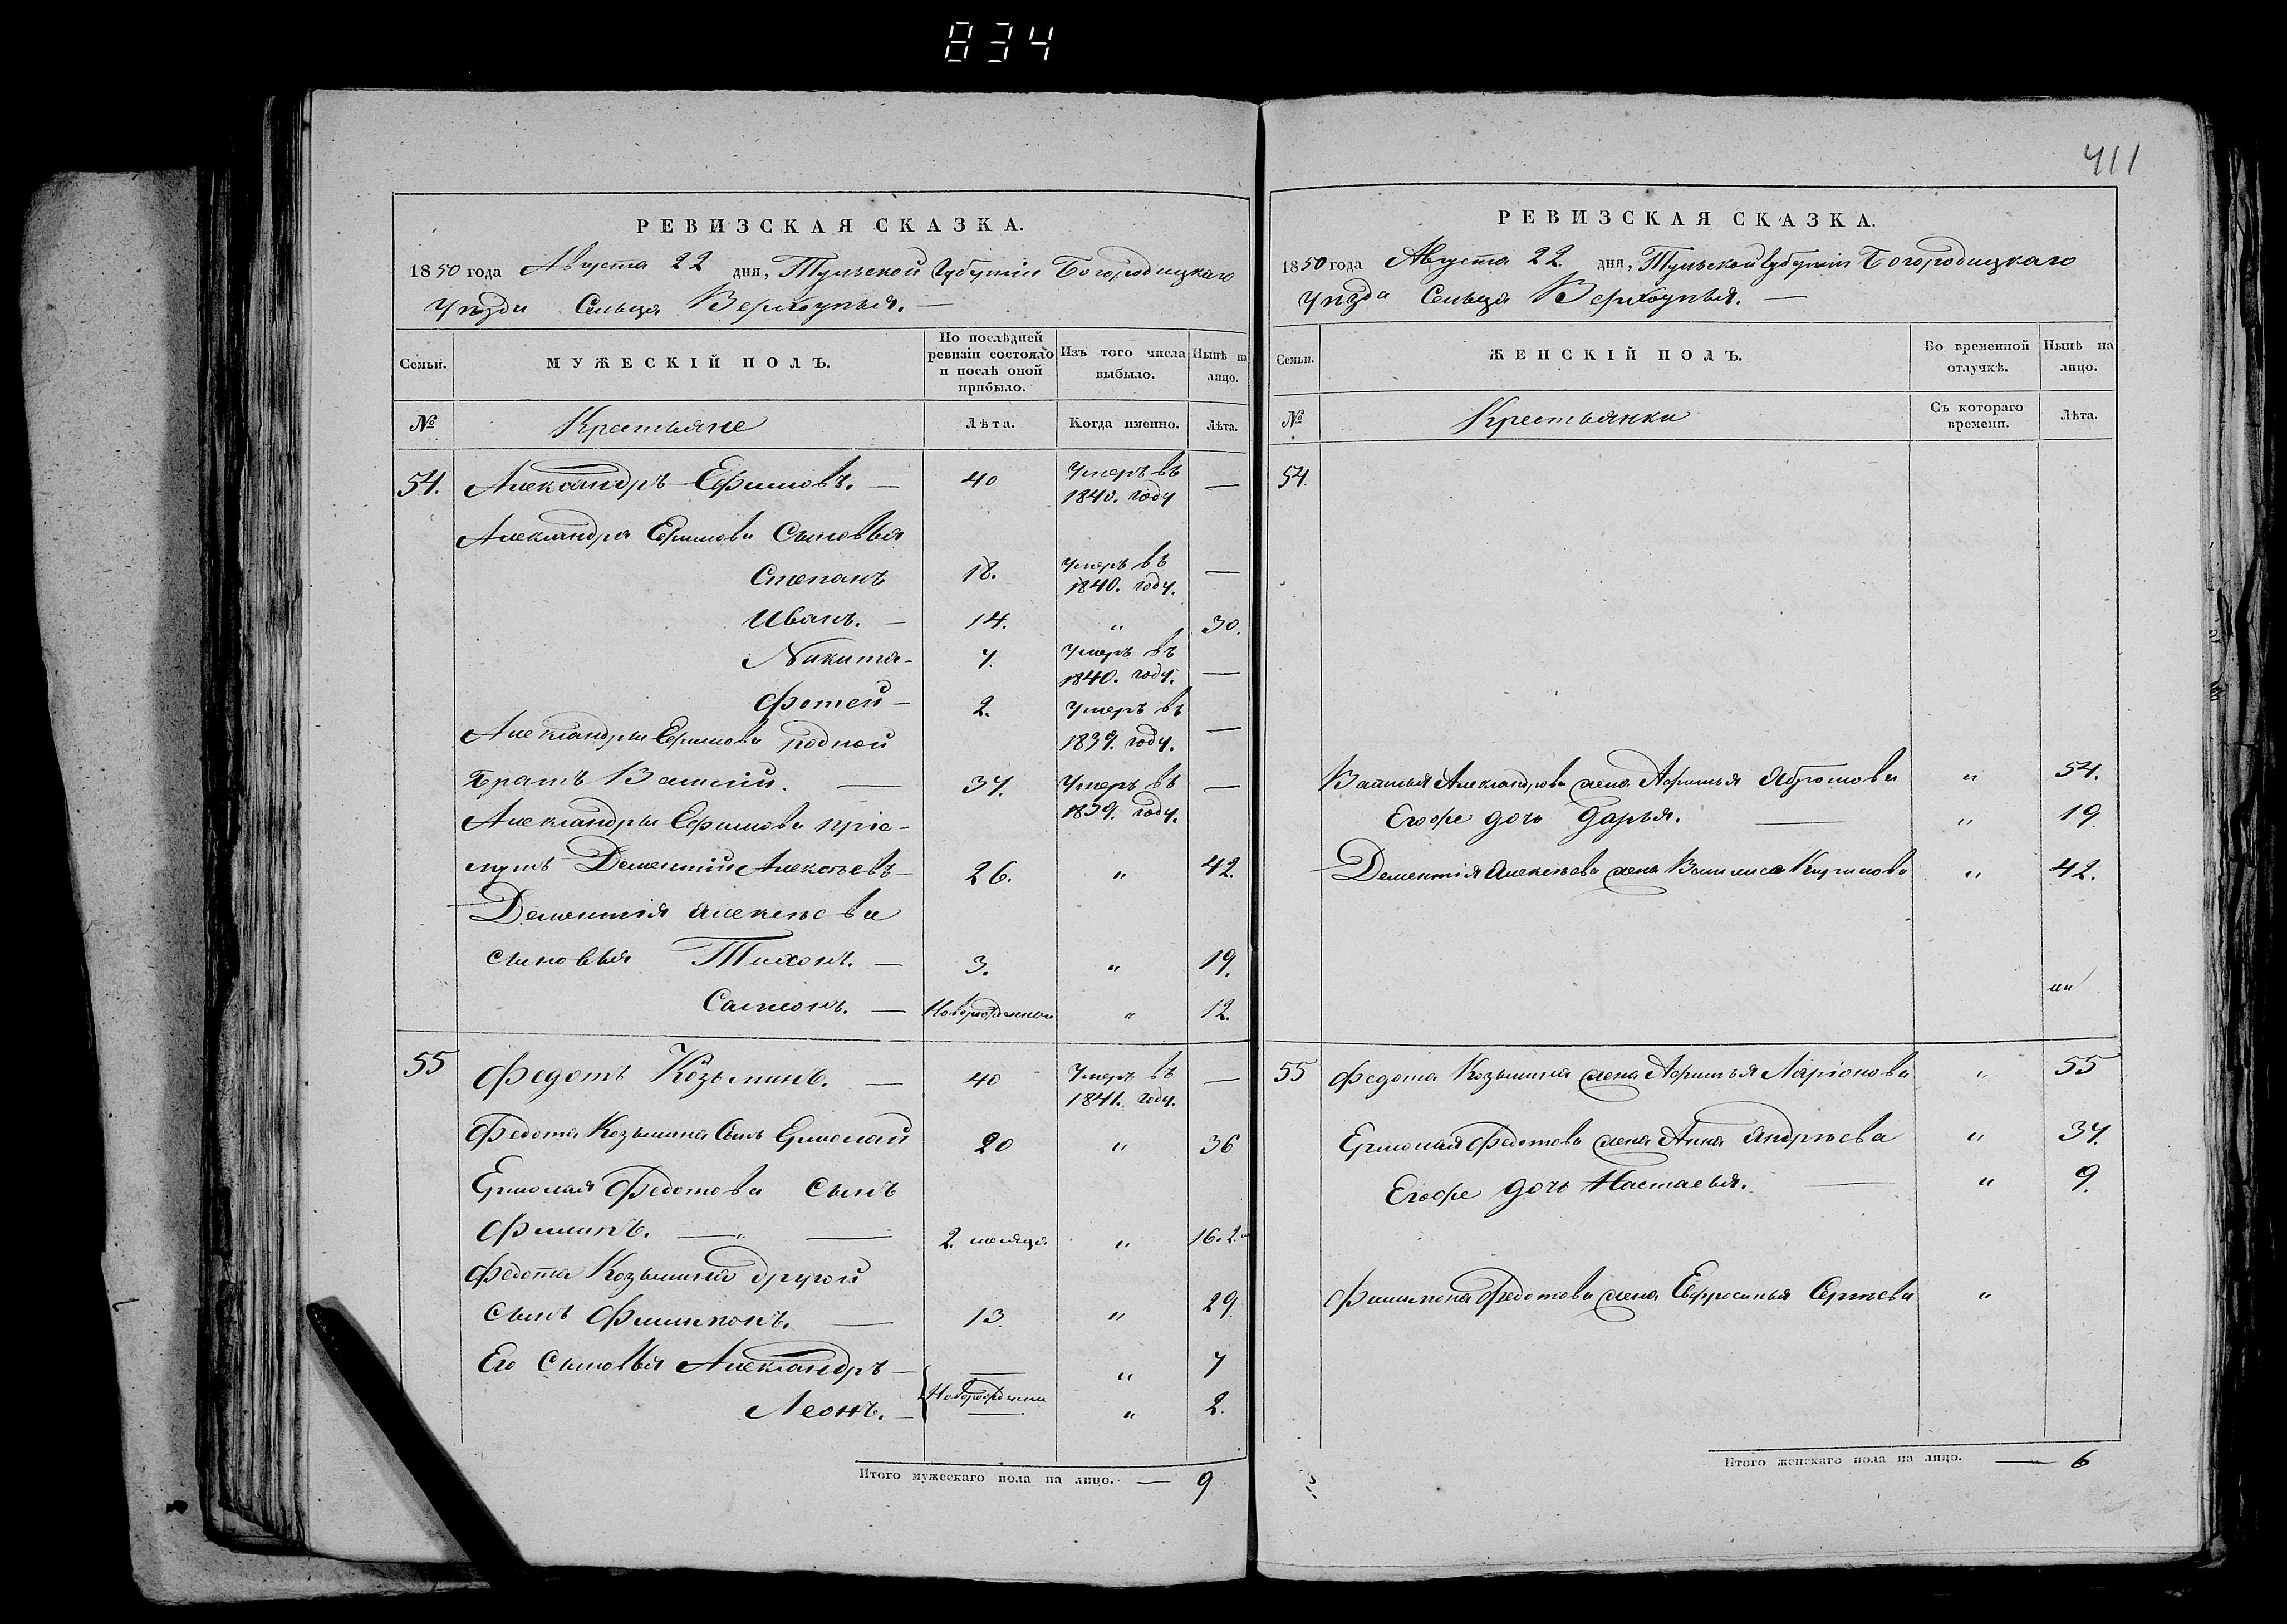 834
411
РЕВИЗСКАЯ СКАЗКА.
1850 года Августа 22 дня, Тульской Губернии Богородицкаго
Уѣзда Сельца Верхоупья. —
Семьи.
МУЖЕСКІЙ ПОЛЪ.
По послѣдней ревизіи состояло и послѣ оной прибыло.
Изъ того числа выбыло.
Нынѣ на лицо.
№
Крестьяне
Лѣта.
Когда именно.
Лѣта.
54. Александръ Ефимовъ. — 40 Умеръ въ 1840. году —
Александра Ефимова Сыновья
Степанъ 18. Умеръ въ 1840. году. —
Иванъ. — 14. „ 30.
Никита — 7. Умеръ въ 1840. году. —
Фотей — 2. Умеръ въ 1839. году. —
Александры Ефимова родной
братъ Василій. — 37. Умеръ въ 1839. году. —
Александры Ефимова пріе-
мышъ Дементій Алексѣевъ — 26. „ 42.
Дементія Алексѣева
сыновья Тихонъ. — 3. „ 19.
Самсонъ. — Новорожденный „ 12.
55 Федотъ Козьминъ. — 40 Умеръ въ 1841. году. —
Федота Козьмина Сынъ Ермолай 20 „ 36
Ермолая Федотова сынъ
Филипъ. — „ — 2. месяца „ 16. 2.
Федота Козьмина другой
сынъ Филимонъ. — 13. „ 29.
Его Сыновья Александръ — „ 7
Леонъ. — Новорожденны „ 2.
Итого мужескаго пола на лицо. — 9
РЕВИЗСКАЯ СКАЗКА.
1850 года Августа 22. дня, Тульской Губернии Богородицкаго
Уѣзда Сельца Верхоупья. —
Семьи.
ЖЕНСКІЙ ПОЛЪ.
Во временной отлучкѣ.
Нынѣ на лицо.
№
Крестьянки
Съ котораго времени.
Лѣта.
54.
Василья Александрова жена Афимья Абромова „ 54.
Егоже дочь Дарья. — „ 19.
Дементія Алексѣева жена Василиса „ 42.
55 Федота Козьмина жена Афимья Ларіонова „ 55
Ермолая Федотова жена Анна Андрѣева „ 37.
Егоже дочь Настасья. — „ 9.
Филимона Федотова жена Ефросинья Сергѣева „
Итого женскаго пола на лицо. — 6